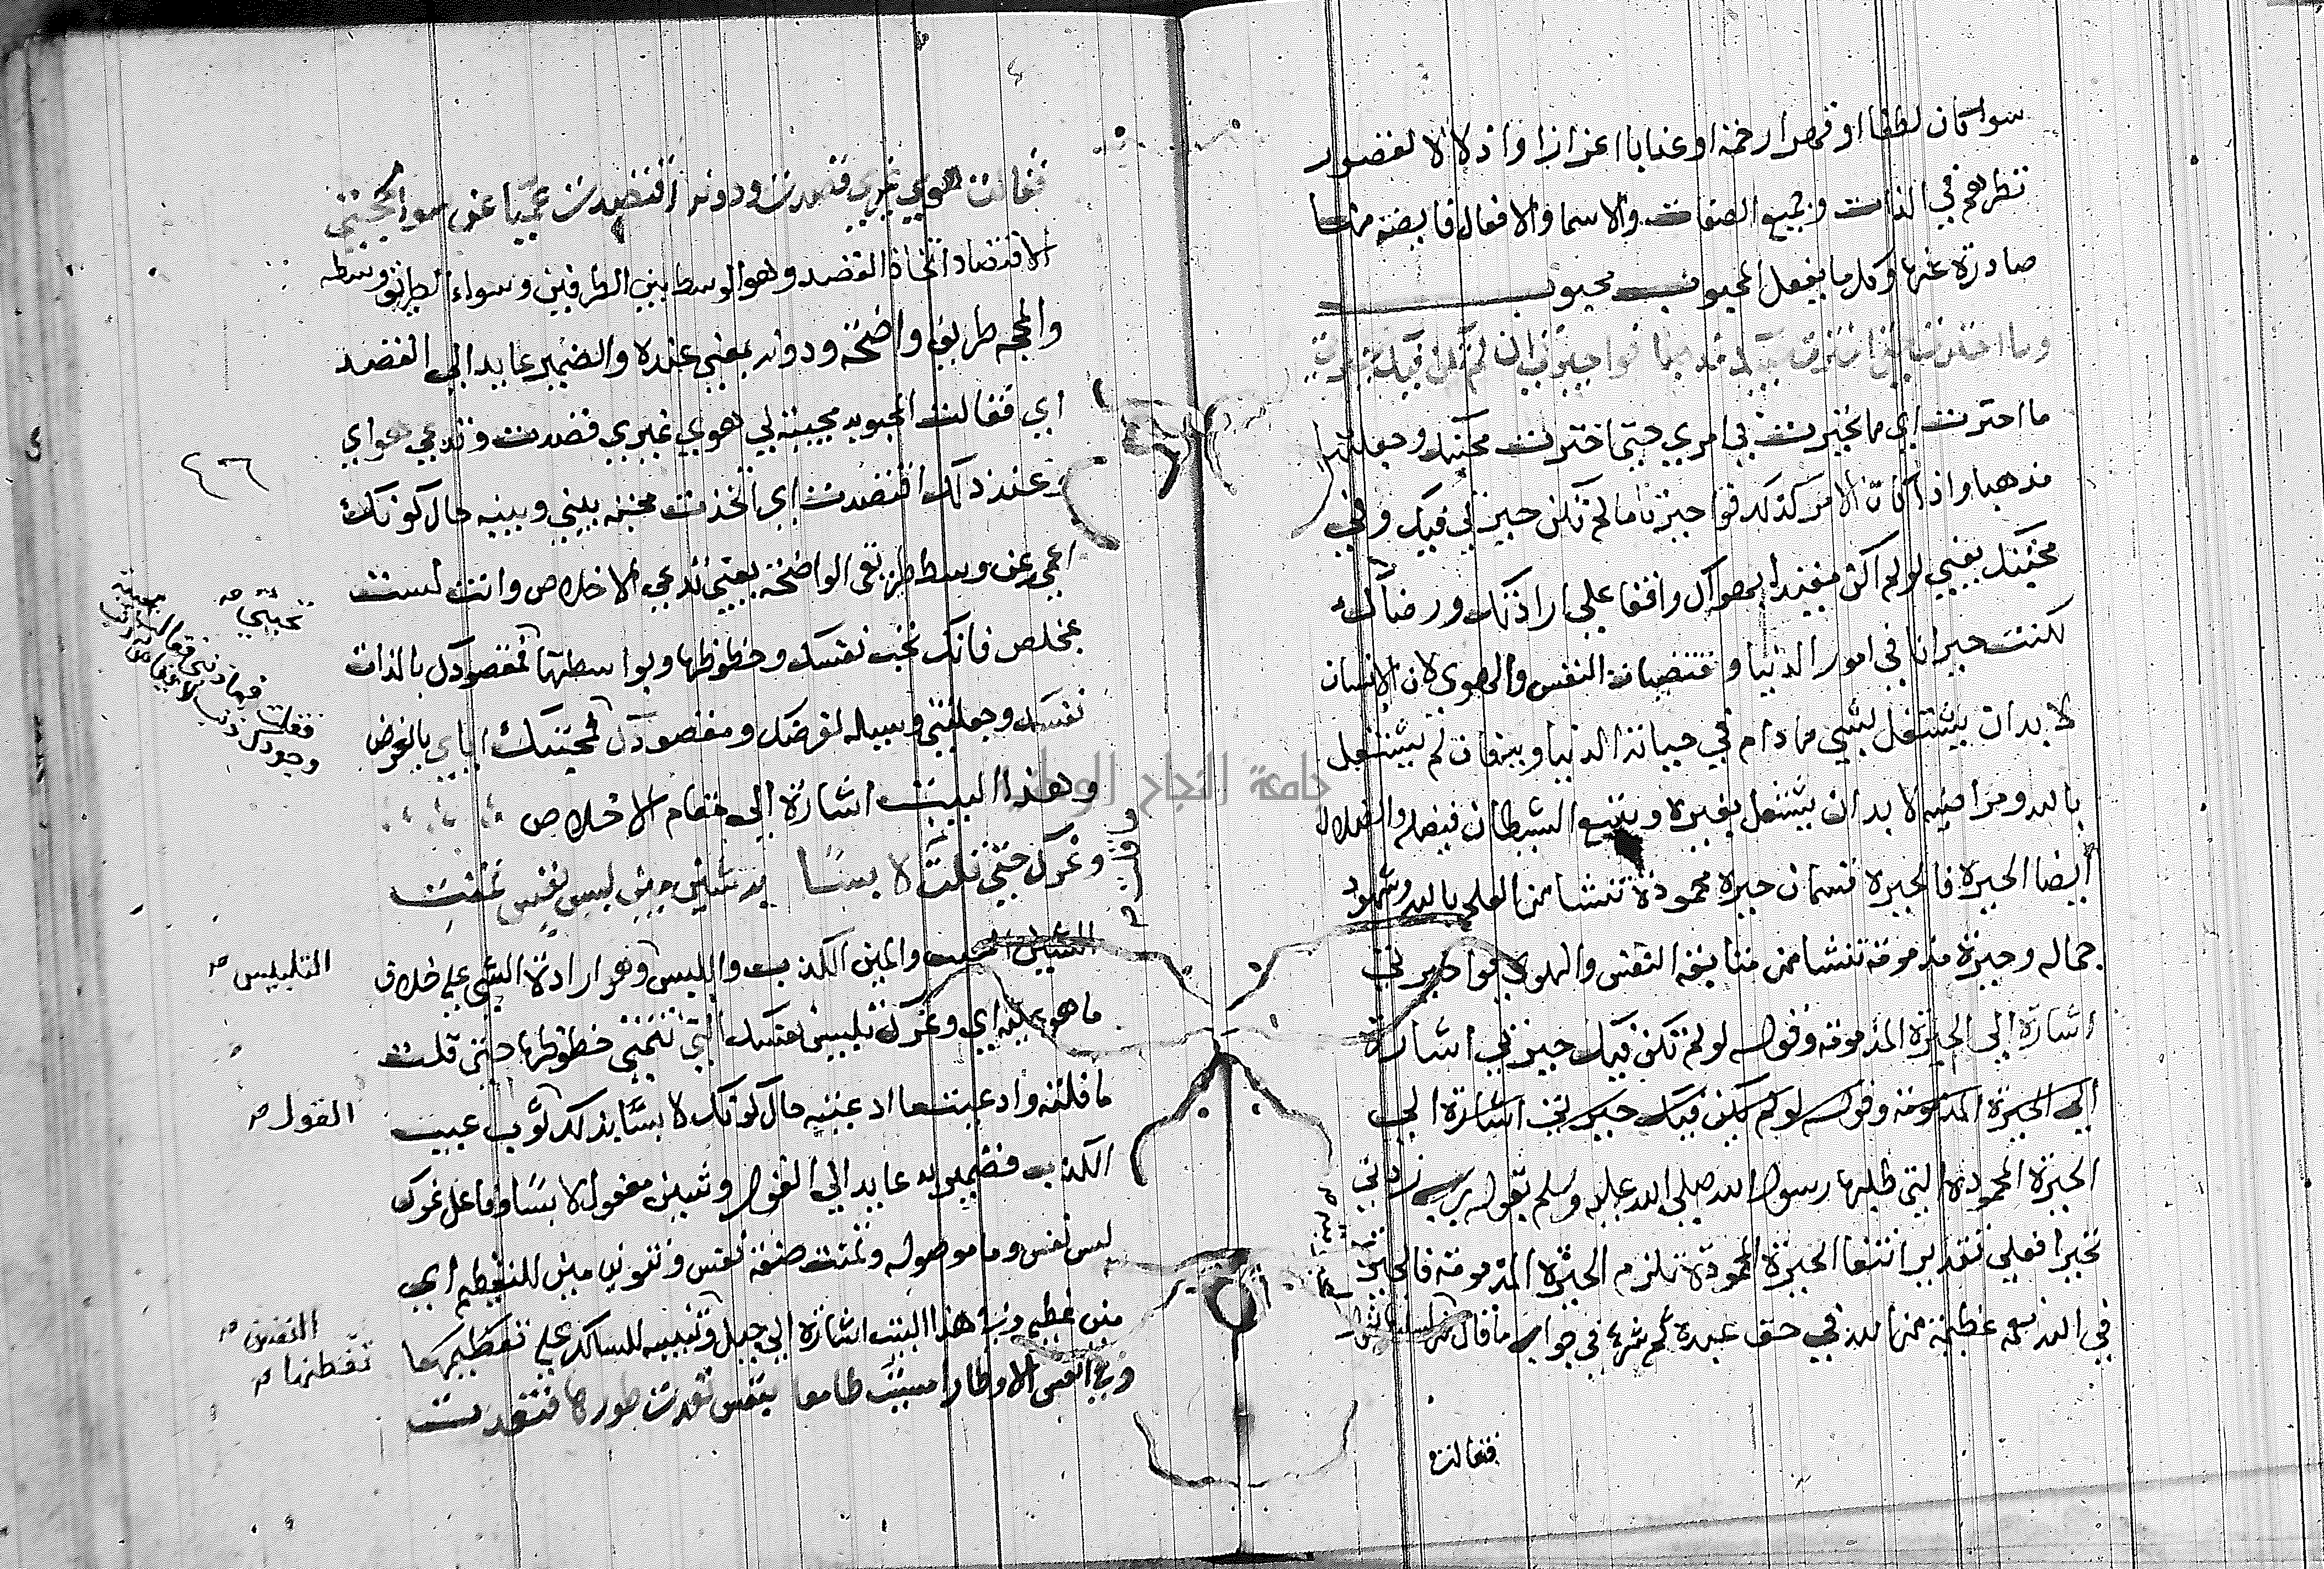 سوا كان لطفا او قهرا رحمة او عذابا اعزازا و اذلالا لقصور
نظرهم في الذات وجميع الصفات والاسما والافعال فايضة منها
صادرة عنها وكل ما يفعل المحبوب محبوب
وما اخترت حتى اخترت حبيك مذهبا فوا حيرتي ان لم تكن فيك خيرتي
ما اخترت اي ما تحيرت في امري حتى اخترت محبتك وجعلتها
مذهبا واذا كان الامر كذلك فوا حيرتا ما لم تكن حيرتي فيك وفي
محبتك يعني لو لم اكن مقيدا بهواك واقفا علي ارادتك ورضاك
لكنت حيرانا في امور الدنيا و مقتضيات النفس والهوى لان الانسان
لا بد ان يشتغل بشي ما دام في حياته الدنيا وية فان لم يشتغل
بالله ومراضيه لا بد ان يشتغل بغيره ويتبع الشيطان فيضله والضلال
ايضا الحيرة فالحيرة قسمان حيرة محمودة تنشا من العلم بالله وشهود
جماله وحيرة مذمومة تنشا من متابعة النفس والهوى فوا حيرتي
اشارة الي الحيرة المذمومة وقوله لو لم تكن فيك حيرتي اشارة
الي الحيرة المذمومة وقوله لو لم تكن فيك حيرتي اشارة الي
الحيرة المحمودة التي طلبها رسول الله صلي الله عليه وسلم بقوله رب زدني
تحيرا فعلي تقدير انتفا الحيرة المحمودة تلزم الحيرة المذمومة فالحيرة
في الله نعمة عظيمة من الله في حق عبده ثم شرع في جواب ما قال
فقالت
فقالت هوي غيري قصدت ودونه اقتصدت عميا عن سوا محجتي
الاقتصاد اتخاذ القصد وهو الوسط بين الطرفين وسواء الطريق وسطه
والمحجة طريق واضحة ودونه بمعني عنده والضمير عايد الي القصد
اي فقالت المحبوبة مجيبة لي هوي غيري قصدت وتدعي هواي
وعند ذلك اقتصدت اي اتخذت محجة بيني وبينه حال كونك
اعمي عن وسط طريقي الواضحة يعني تدعي الاخلاص وانت لست
بمخلص فانك تحب نفسك وحظوظها وبواسطتها فمقصودك بالذات
نفسك وجعلتني وسيلة لغرضك ومقصودك فمحبتك اياي بالعرض
وهذا البيت اشارة الي مقام الاخلاص
وغرك حتى قلت لا بسا به شين مين لبس نفس تمنت
الشين العيب والمين الكذب واللبس وهو ارادة الشي علي خلاف
ما هو عليه اي وغرك تلبيس نفسك التي تتمني حظوظها حتى قلت
ما قلته وادعيت ما ادعيته حال كونك لا بسا بذلك ثوب عيب
الكذب فضمير به عايد الي القول وشين مفعول لا بسا وفاعل غرك
لبس نفس وما موصوله وتمنت صفة نفس وتنوين مين للتعظيم اي
مين عظيم وفي هذا البيت اشارة الي حيل وتنبيه للسالك علي تغطيتها
وفي انفس الاوطار امسيت طامعا بنفس تعدت طورها فتعدت
٤٦
محبتي
التلبيس
القول
النفس
تغطيتها
فقلت فما اذنبت
وجودك ذنب لا يقاس به ذنب
جامعة النجاح الوطنية